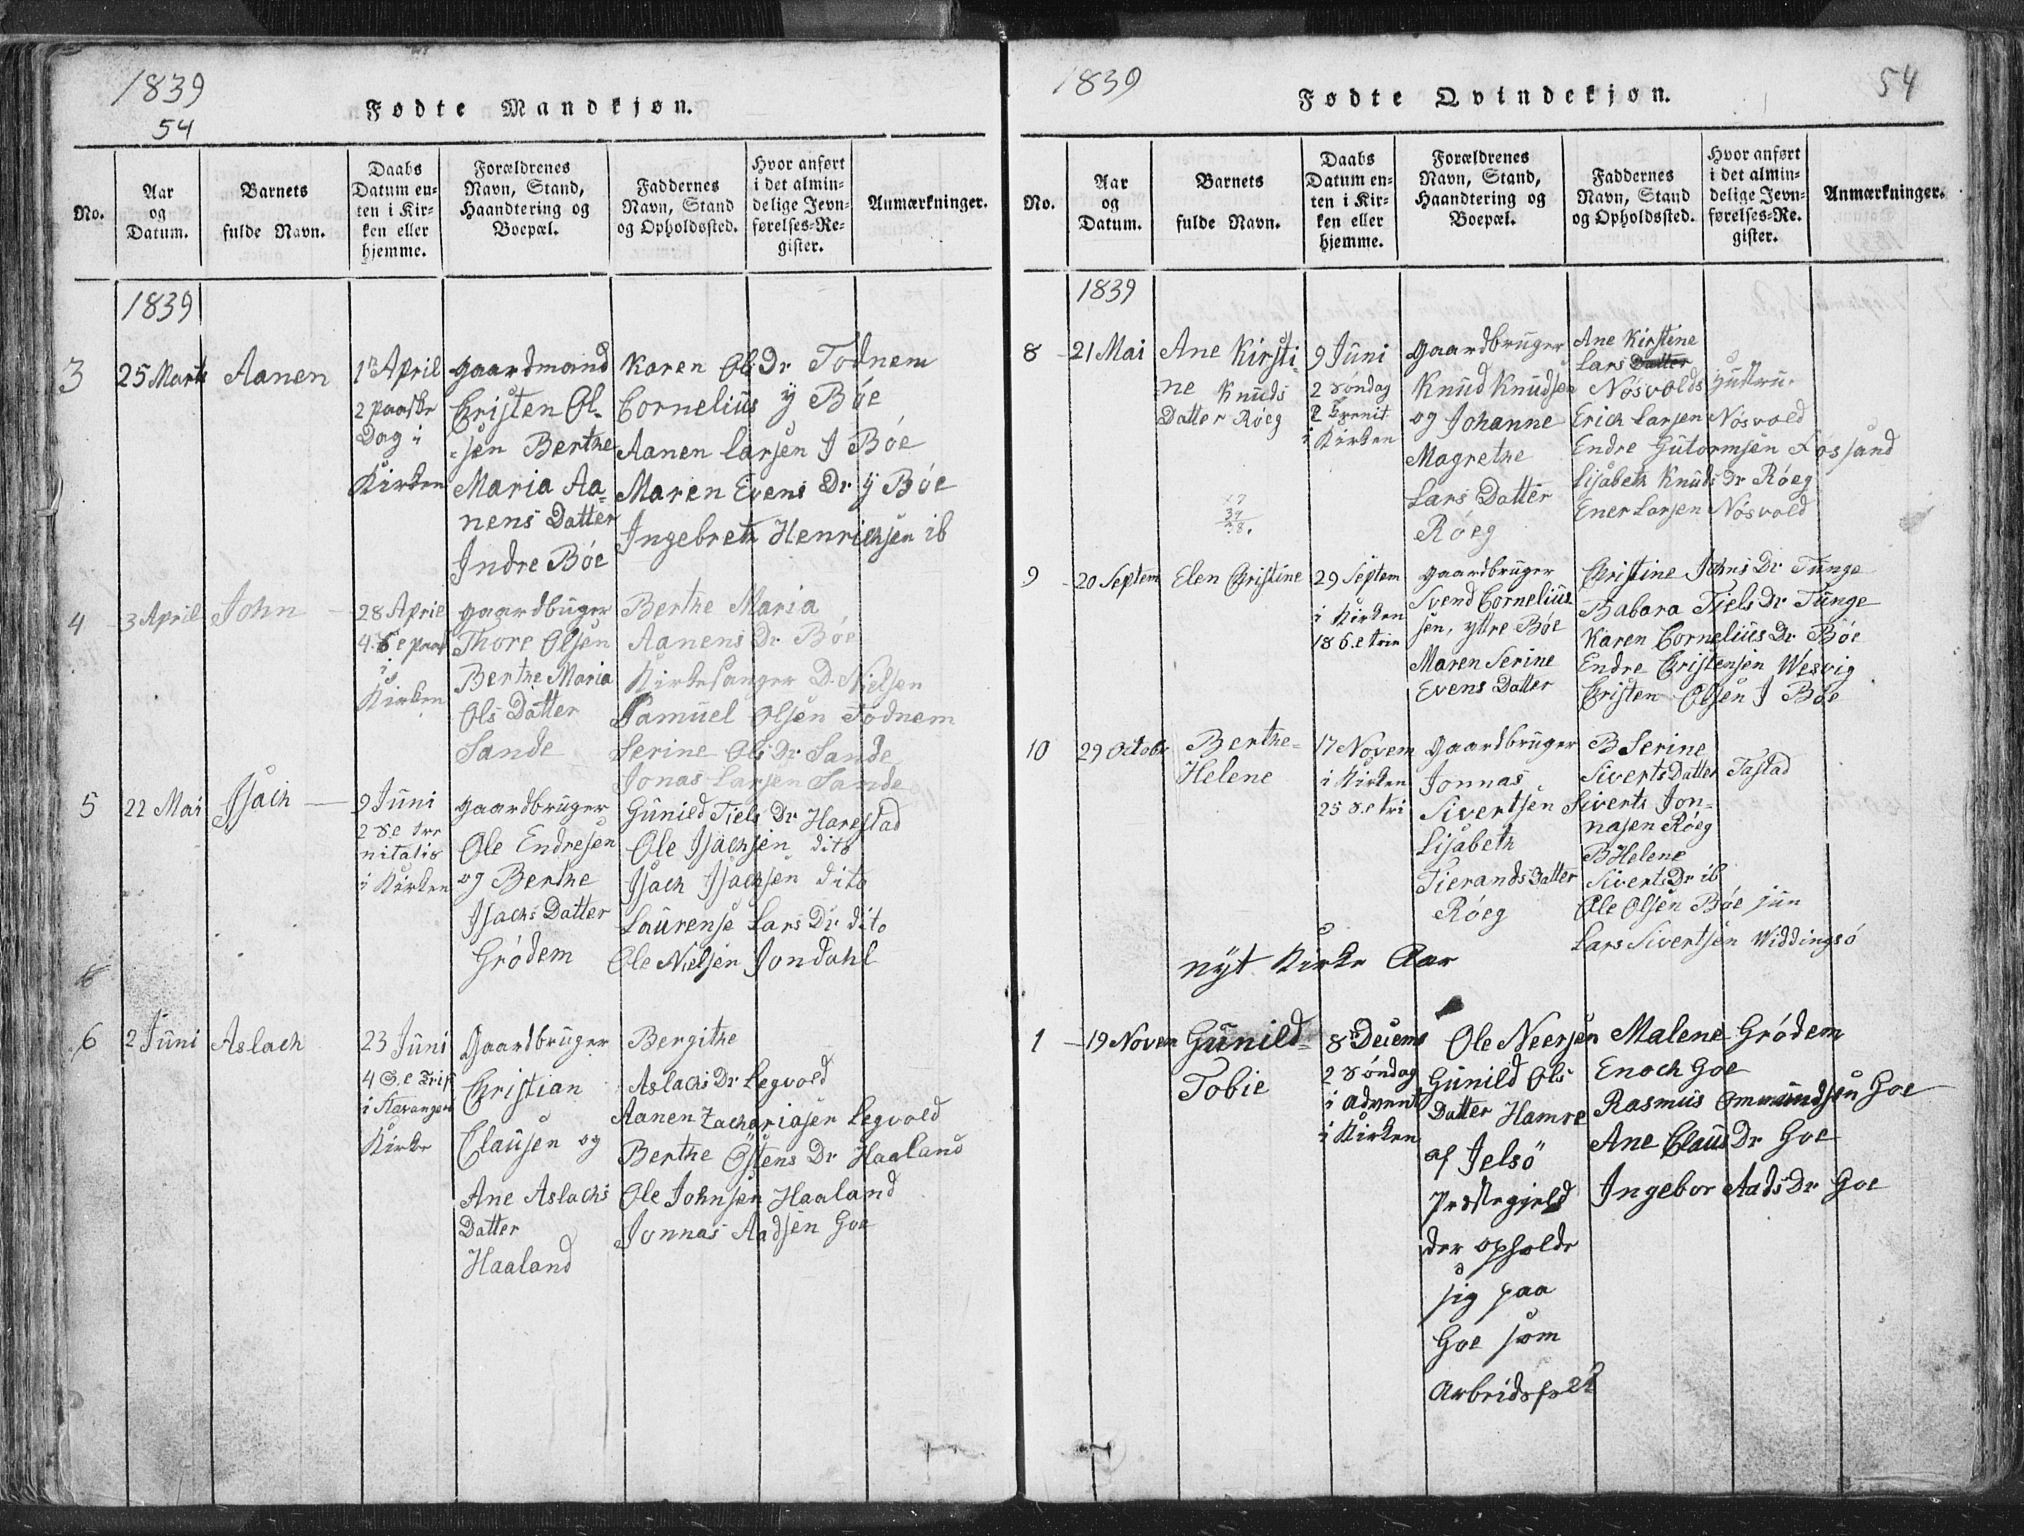 1839
54
Fødte Mandkjøn.
No.
Aar
og
Datum.
Barnets
fulde Navn.
Daabs
Datum en-
ten i Kir-
ken eller
hjemme.
Forældrenes
Navn, Stand,
Haandtering og
Boepæl.
Faddernes
Navn, Stand
og Opholdssted.
Hvor anført
i det almin-
delige Jevn-
førelses-Re-
gister.
Anmærkninger.
1839
3
25 Marts
Aanen
1ste April
2 paaske
Dag i
Kirken
gaardmand
Christen Ol-
sen Berthe
Maria Aa-
nens Datter
Indre Bóe
Karen Ols Dr Todnem
Cornelius y Bóe
Aanen Larsen I Bóe
Maren Evens Dr ÿ Bóe
Ingebreth Henrichsen ib
4
3 April
John
28 April
4. S e paas
i
Kirken
gaardbruger
Thore Olsen
Berthe Maria
Ols Datter
Sande
Berthe Maria
Aanens Dr Bóe
Kirkesanger D. Nielsen
Samuel Olsen Todnem
Serine Ols Dr Sande
Jonas Larsen Sande
5
22 Mai
Isach
9 Juni
2 S.e tre
nitatis
i Kirken
gaardbruger
Ole Endresen
og Berthe
Isachs Datter
Gródem
Gunild Tiels Dr Harestad
Ole Isachsen dito
Isach Isachsen dito
Laurense Lars Dr dito
Ole Nielsen Jondahl
6
6
2 Juni
Aslach
23 Juni
4 S.e Tri
i Stavanger
Kirke
Gaardbruger
Christian
Clausen og
Ane Aslachs
Datter
Haaland
Bergithe
Aslachs Dr Legvold
Aanen Zachariasen Legvold
Berthe Östens Dr Haaland
Ole Johnsen Haaland
Jonnas Aadsen Goe
1839
54
Fødte Qvindekjøn.
No.
Aar
og
Datum.
Barnets
fulde Navn.
Daabs
Datum en-
ten i Kir-
ken eller
hjemme.
Forældrenes
Navn, Stand,
Haandtering og
Boepæl.
Faddernes
Navn, Stand
og Opholdssted.
Hvor anført
i det almin-
delige Jevn-
førelses-Re-
gister.
Anmærkninger.
1839
8
21 Mai
Ane Kirsti-
ne Knuds
Datter Róeg
9 Juni
2 Sóndag
i Kirken
gaardbruger
Knud Knudsen
og Johanne
Magrethe
Lars Datter
Róeg
Ane Kirstine
Lars Datter
Nósvolds Hustru.
Erich Larsen Nósvold
Endre Gutormsen Fossand
Lisabeth Knuds Dr Róeg
Ener Larsen Nósvold
9
20 Septem
Elen Christine
29 Septem
i Kirken
18 S.e trin
gaardbruger
Svend Cornelius
sen, yttre Bóe
Maren Serine
Evens Datter
Christine Johns Dr Tunge
Babara Tiels Dr Tunge
Karen Cornelius Dr Bóe
Endre Christensen Wesvig
Christen Olsen I Bóe
10
29 Octobr
Berthe-
Helene
17 Novem
i Kirken
25 S.e tri
gaardbruger
Jonnas
Sivertsen
Lisabeth
Tierands Datter
Róeg
B Serine
Siverts Datter Tastad
Siverts Jon-
nasen Róeg
B Helene
Siverts Dr ib
Ole Olsen Bóe jun
Lars Sivertsen Widdingsó
nyt Kirke Aar
1
19 Novem
Gunild-
Tobie
8de Decems
2 Sóndag
i advent
i Kirken
Ole Neersen
Gunild Ols
Datter Hamre
af Jelsö
Præstegjeld
der opholde
sig paa
Goe som
Arbeidsfolk
Malene Gródem
Enoch Goe
Rasmus Ommundsen Goe
Ane Claus Dr Goe
Ingebor Aads Dr Goe